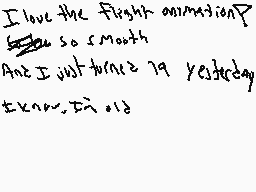 I love the flight animation?
so smooth
And I just turned 19 yesterday
I know, I'm old